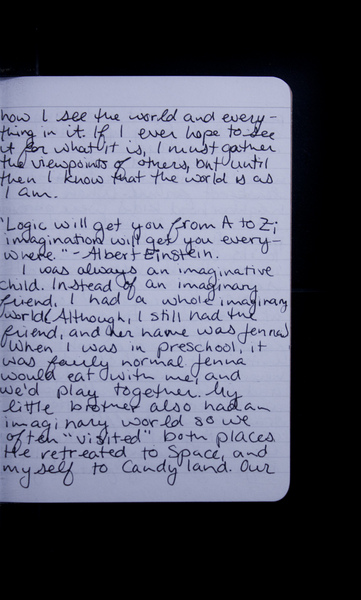 how I see the world and every-
thing in it. If I ever hope to see
it for what it is, I must gather
the viewpoints of others, but until
then I know that the world is as
I am.
"Logic will get you from A to Z;
imagination will get you every-
where." - Albert Einstein.
I was always an imaginative
child. Instead of an imaginary
friend, I had a whole imaginary
world. Although, I still had the
friend, and her name was Jenna.
When I was in preschool, it
was fairly normal. Jenna
would eat with me, and
we'd play together. My
little brother also had an
imaginary world so we
often "visited" both places.
He retreated to Space, and
myself to Candyland. Our